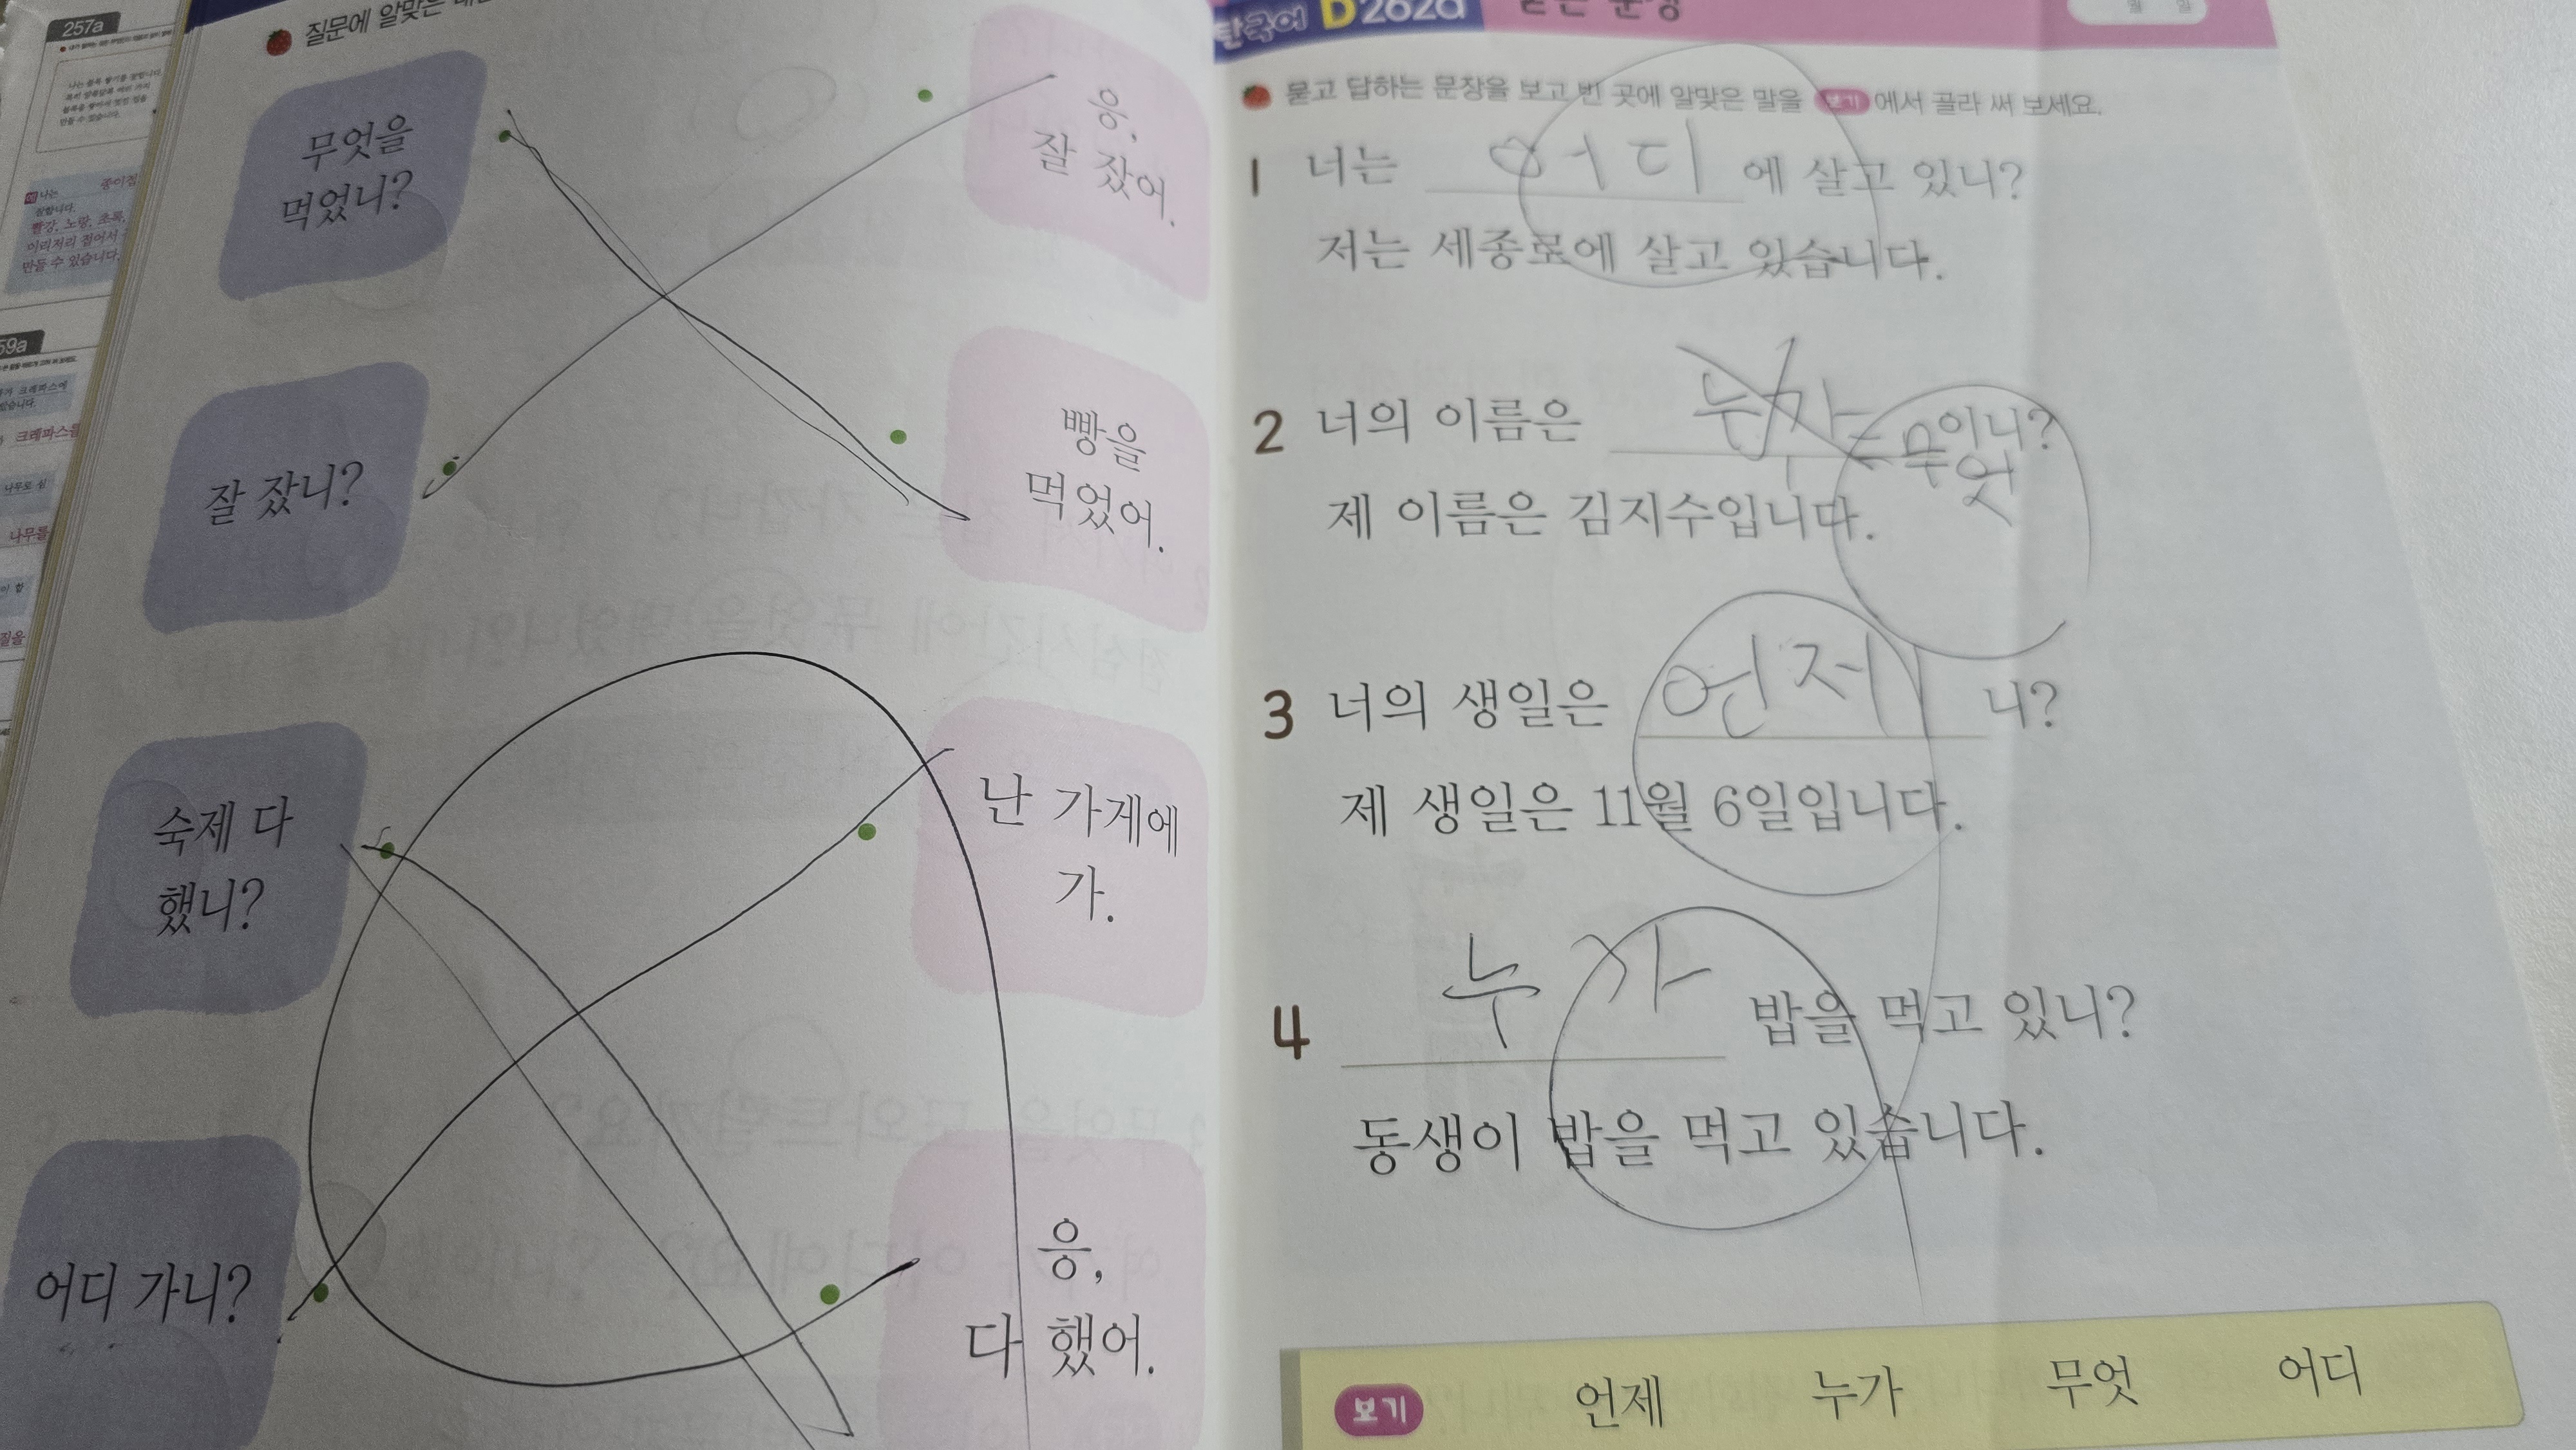 257a
59a
크레파스를
나무를
질문에 알맞은
무엇을
먹었니?
응,
잘 잤어.
잘 잤니?
빵을
먹었어.
숙제 다
했니?
난 가게에
가.
어디 가니?
응,
다 했어.
D262a
묻고 답하는 문장을 보고 빈 곳에 알맞은 말을 보기 에서 골라 써 보세요.
1 너는 어디 에 살고 있니?
저는 세종로에 살고 있습니다.
2 너의 이름은 누가 무엇 이니?
제 이름은 김지수입니다.
3 너의 생일은 언제 니?
제 생일은 11월 6일입니다.
4 누가 밥을 먹고 있니?
동생이 밥을 먹고 있습니다.
보기 언제 누가 무엇 어디